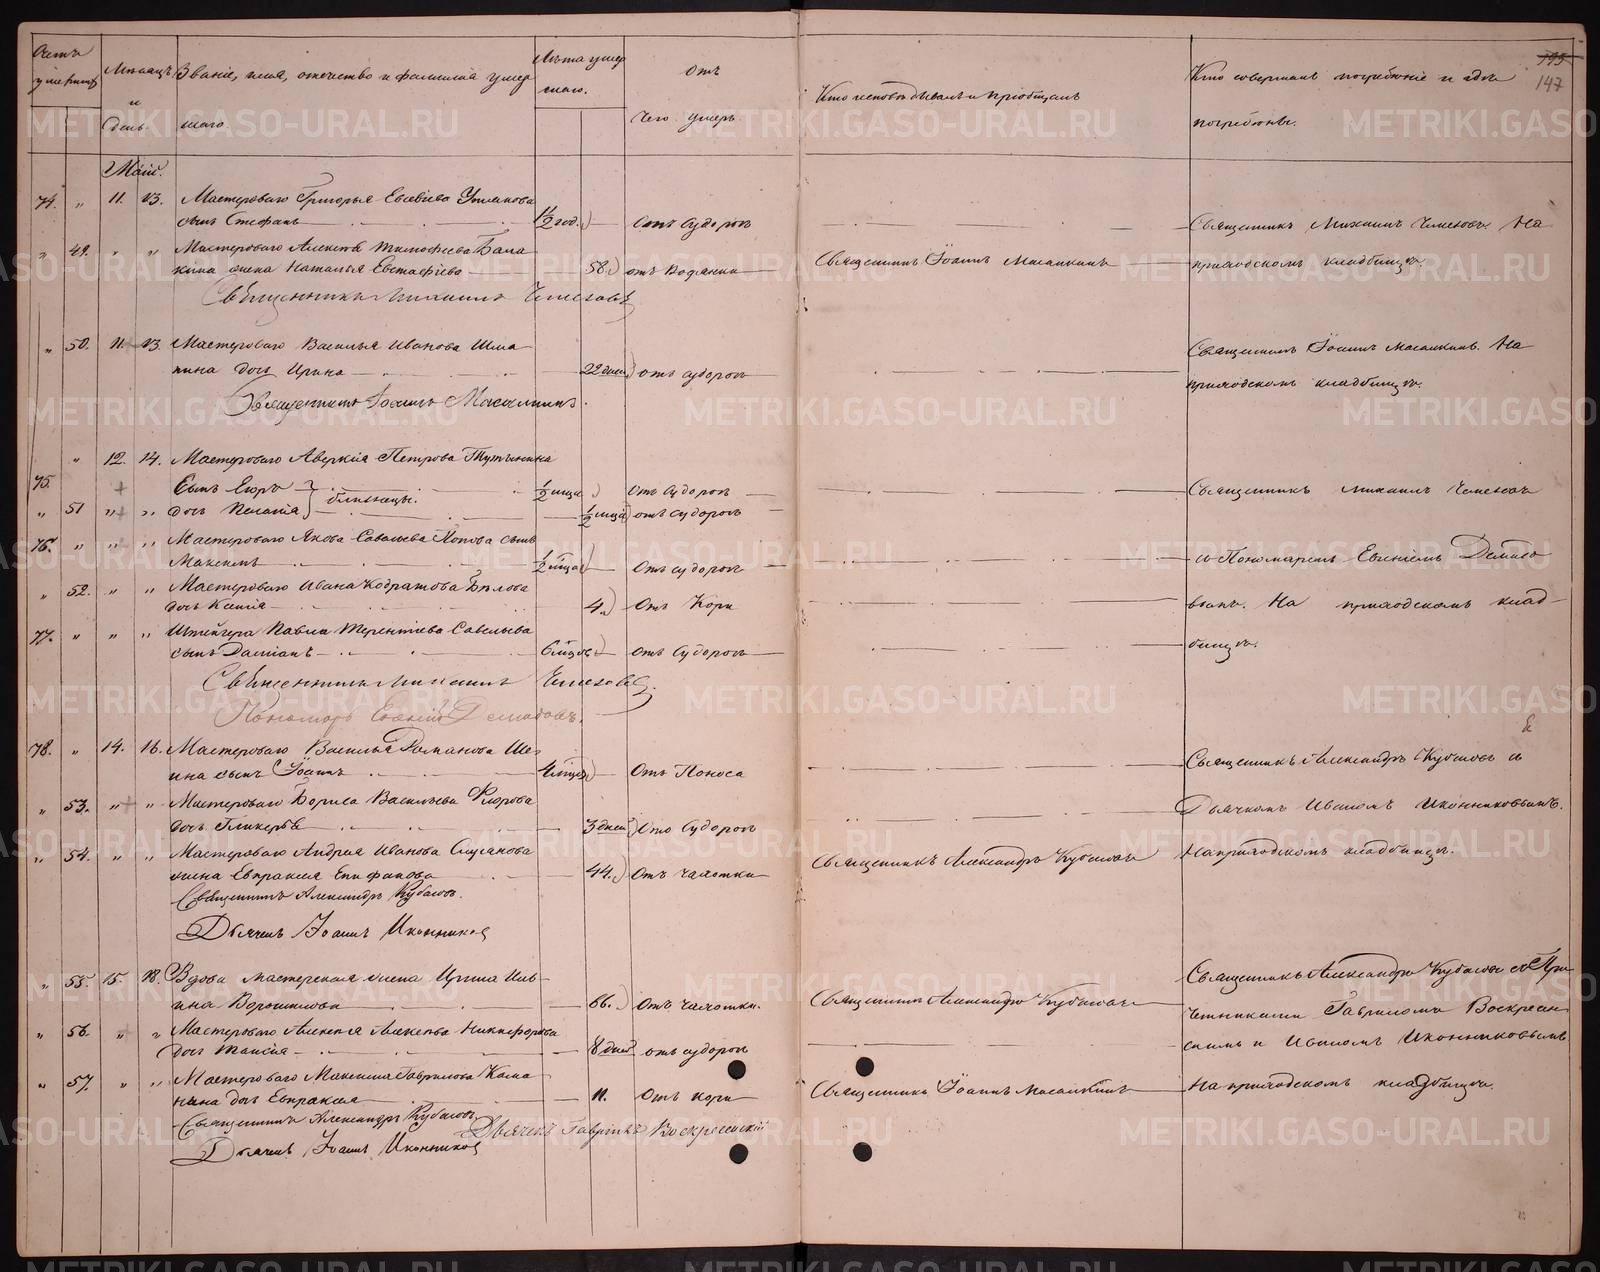 Счетъ умершихъ
Мѣсяцъ и день.
Званіе, имя, отчество и фамилія умершаго.
Лѣта умершаго.
Отъ чего умеръ
Кто исповѣдывалъ и пріобщалъ
Кто совершалъ погребеніе и гдѣ погребенъ.
195
147
Май.
74. „ 11. 13. Мастероваго Григорья Евсевіева
сынъ Стефанъ 1½ год. отъ судорогъ Священникъ Михаилъ Чемезовъ. На
„ 49. „ „ Мастероваго Алексѣя Тимофеева Бала
кина жена Наталья Евстафіева 58. отъ водянки Священникъ Іоаннъ приходскомъ кладбищѣ.
Священникъ Михаилъ Чемезовъ
„ 50. 11. 13. Мастероваго Василья Иванова Шма Священникъ Іоаннъ На
кина дочь Ирина 22 дней отъ судорогъ приходскомъ кладбищѣ.
Священникъ Іоаннъ
„ 12. 14. Мастероваго Аверкія Петрова
75. сынъ Егоръ близнецы. ½ мѣсяца Отъ судорогъ Священникъ Михаилъ Чемезовъ
„ 51 „ „ дочь Пелагія ½ мѣсяца отъ судорогъ
76. „ „ „ Мастероваго Якова Савельева Попова сынъ
Максимъ ½ мѣсяца Отъ судорогъ съ Пономаремъ Евгеніемъ Демидо
„ 52. „ „ Мастероваго Ивана Кодратова Бѣлова
дочь Ксенія 4. Отъ Кори вымъ. На приходскомъ клад
77. „ „ „ Штейгера Павла Терентіева Савельева
сынъ Даміанъ 6 мѣсяц. Отъ судорогъ бищѣ.
Священникъ Михаилъ Чемезовъ.
Пономарь Евгеній Демидовъ.
78. „ 14. 16. Мастероваго Василья Романова Ше
ина сынъ Іоаннъ Отъ Поноса Священникъ Александръ Кубасовъ съ
„ 53. „ „ Мастероваго Бориса Васильева Флорова Дьячкомъ Иваномъ Иконниковымъ.
дочь Гликерія 3 дней Отъ судорогъ
„ 54. „ „ Мастероваго Андрея Иванова Священникъ Александръ Кубасовъ На приходскомъ кладбищѣ.
жена Евпраксія Епифанова 44. Отъ чахотки
Священникъ Александръ Кубасовъ.
Дьячекъ Іоаннъ Иконниковъ
„ 55. 15. 18. Вдова мастерская жена Ирина Иль Священникъ Александръ Кубасовъ съ При
ина Ворошилова 66. Отъ чахотки. Священникъ Александръ Кубасовъ четниками Гавриломъ Воскресен
„ 56. „ „ Мастероваго Алексѣя Алексѣева Никифорова
дочь Таисія 8 дней отъ судорогъ скимъ и Иваномъ Иконниковымъ
„ 57. „ „ Мастероваго Максима Гаврилова Кама
нина дочь Евпраксія 11. Отъ кори Священникъ Іоаннъ На приходскомъ кладбищѣ.
Священникъ Александръ Кубасовъ
Дьячекъ Гавріилъ Воскресенскій
Дьячекъ Іоаннъ Иконниковъ
METRIKI.GASO-URAL.RU